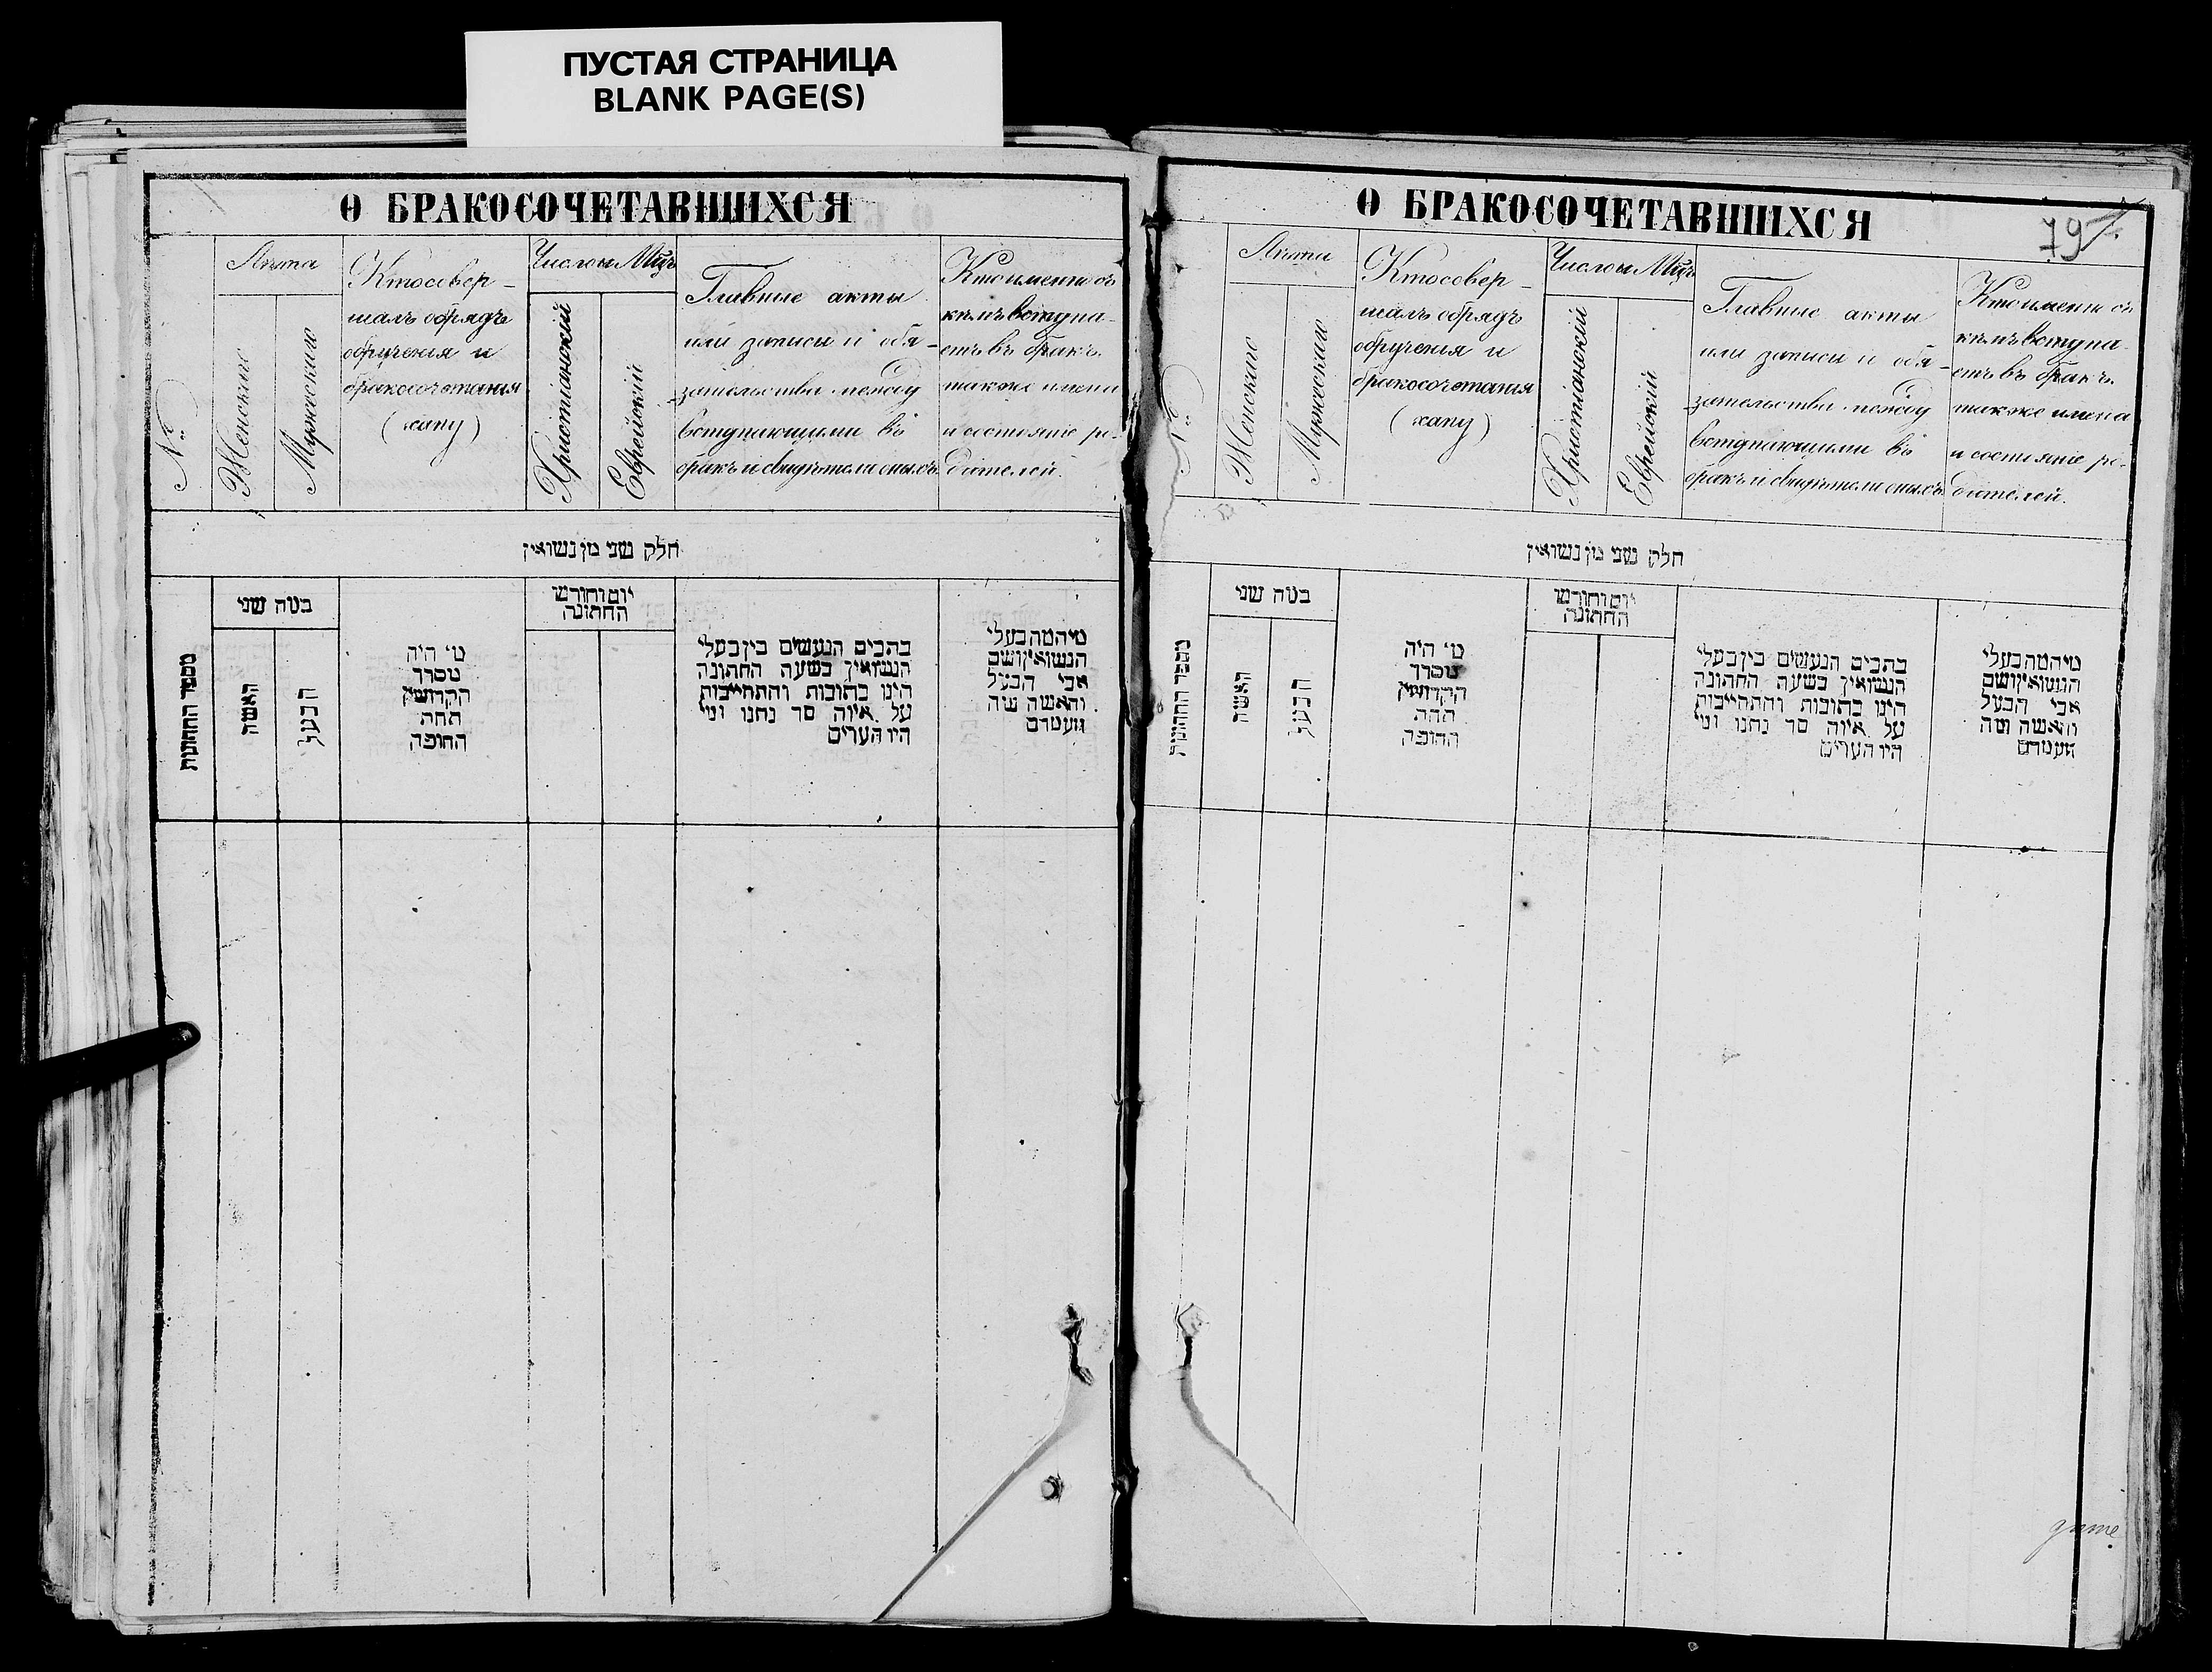 ПУСТАЯ СТРАНИЦА
BLANK PAGE(S)
О БРАКОСОЧЕТАВШИХСЯ
№
Лѣта
Женскаго
Мужескаго
Кто совер-
шалъ обрядъ
обрученія и
бракосочетанія
(хапу)
Число и Мцъ
Христіанскій
Еврейскій
Главные акты
или записи и обя-
зательства между
вступающими въ
бракъ и свидѣтели оныхъ
Кто именно съ
кѣмъ вступа-
етъ въ бракъ.
также имена
и состояніе ро-
дителей.
חלק שני מן נשואין
מספר החתונות
כמה שני
האשה
הבעל
מי היה
מסדר
הקדושין
תחת
החופה
יום וחודש
החתונה
כתבים הנעשים בין בעלי
הנשואין בשעה החתונה
הינו כתובות והתחייבות
על איזה סך נתנו ומי
היו העדים
מי המה בעלי
הנשואין ושם
אבי הבעל
והאשה ומה
מעמדם
О БРАКОСОЧЕТАВШИХСЯ
79
№
Лѣта
Женскаго
Мужескаго
Кто совер-
шалъ обрядъ
обрученія и
бракосочетанія
(хапу)
Число и Мцъ
Христіанскій
Еврейскій
Главные акты
или записи и обя-
зательства между
вступающими въ
бракъ и свидѣтели оныхъ
Кто именно съ
кѣмъ вступа-
етъ въ бракъ.
также имена
и состояніе ро-
дителей.
חלק שני מן נשואין
מספר החתונות
כמה שני
האשה
הבעל
מי היה
מסדר
הקדושין
תחת
החופה
יום וחודש
החתונה
כתבים הנעשים בין בעלי
הנשואין בשעה החתונה
הינו כתובות והתחייבות
על איזה סך נתנו ומי
היו העדים
מי המה בעלי
הנשואין ושם
אבי הבעל
והאשה ומה
מעמדם